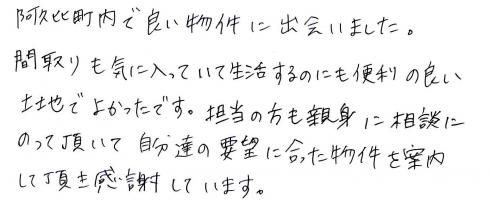 阿久比町内で良い物件に出会いました。
間取りも気に入っていて生活するのにも便利の良い
土地でよかったです。担当の方も親身に相談に
のって頂いて自分達の要望に合った物件を案内
して頂き感謝しています。